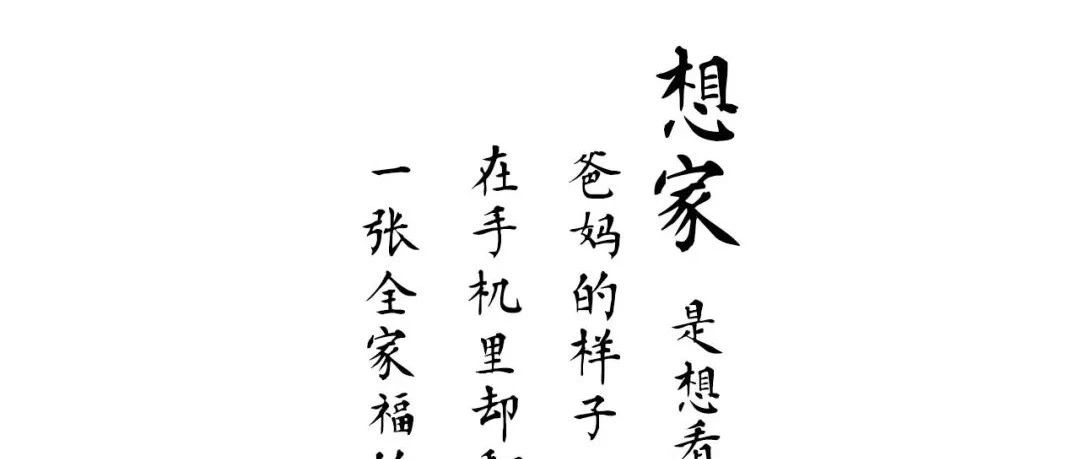 想家 是想看
爸妈的样子
在手机里却
一张全家福